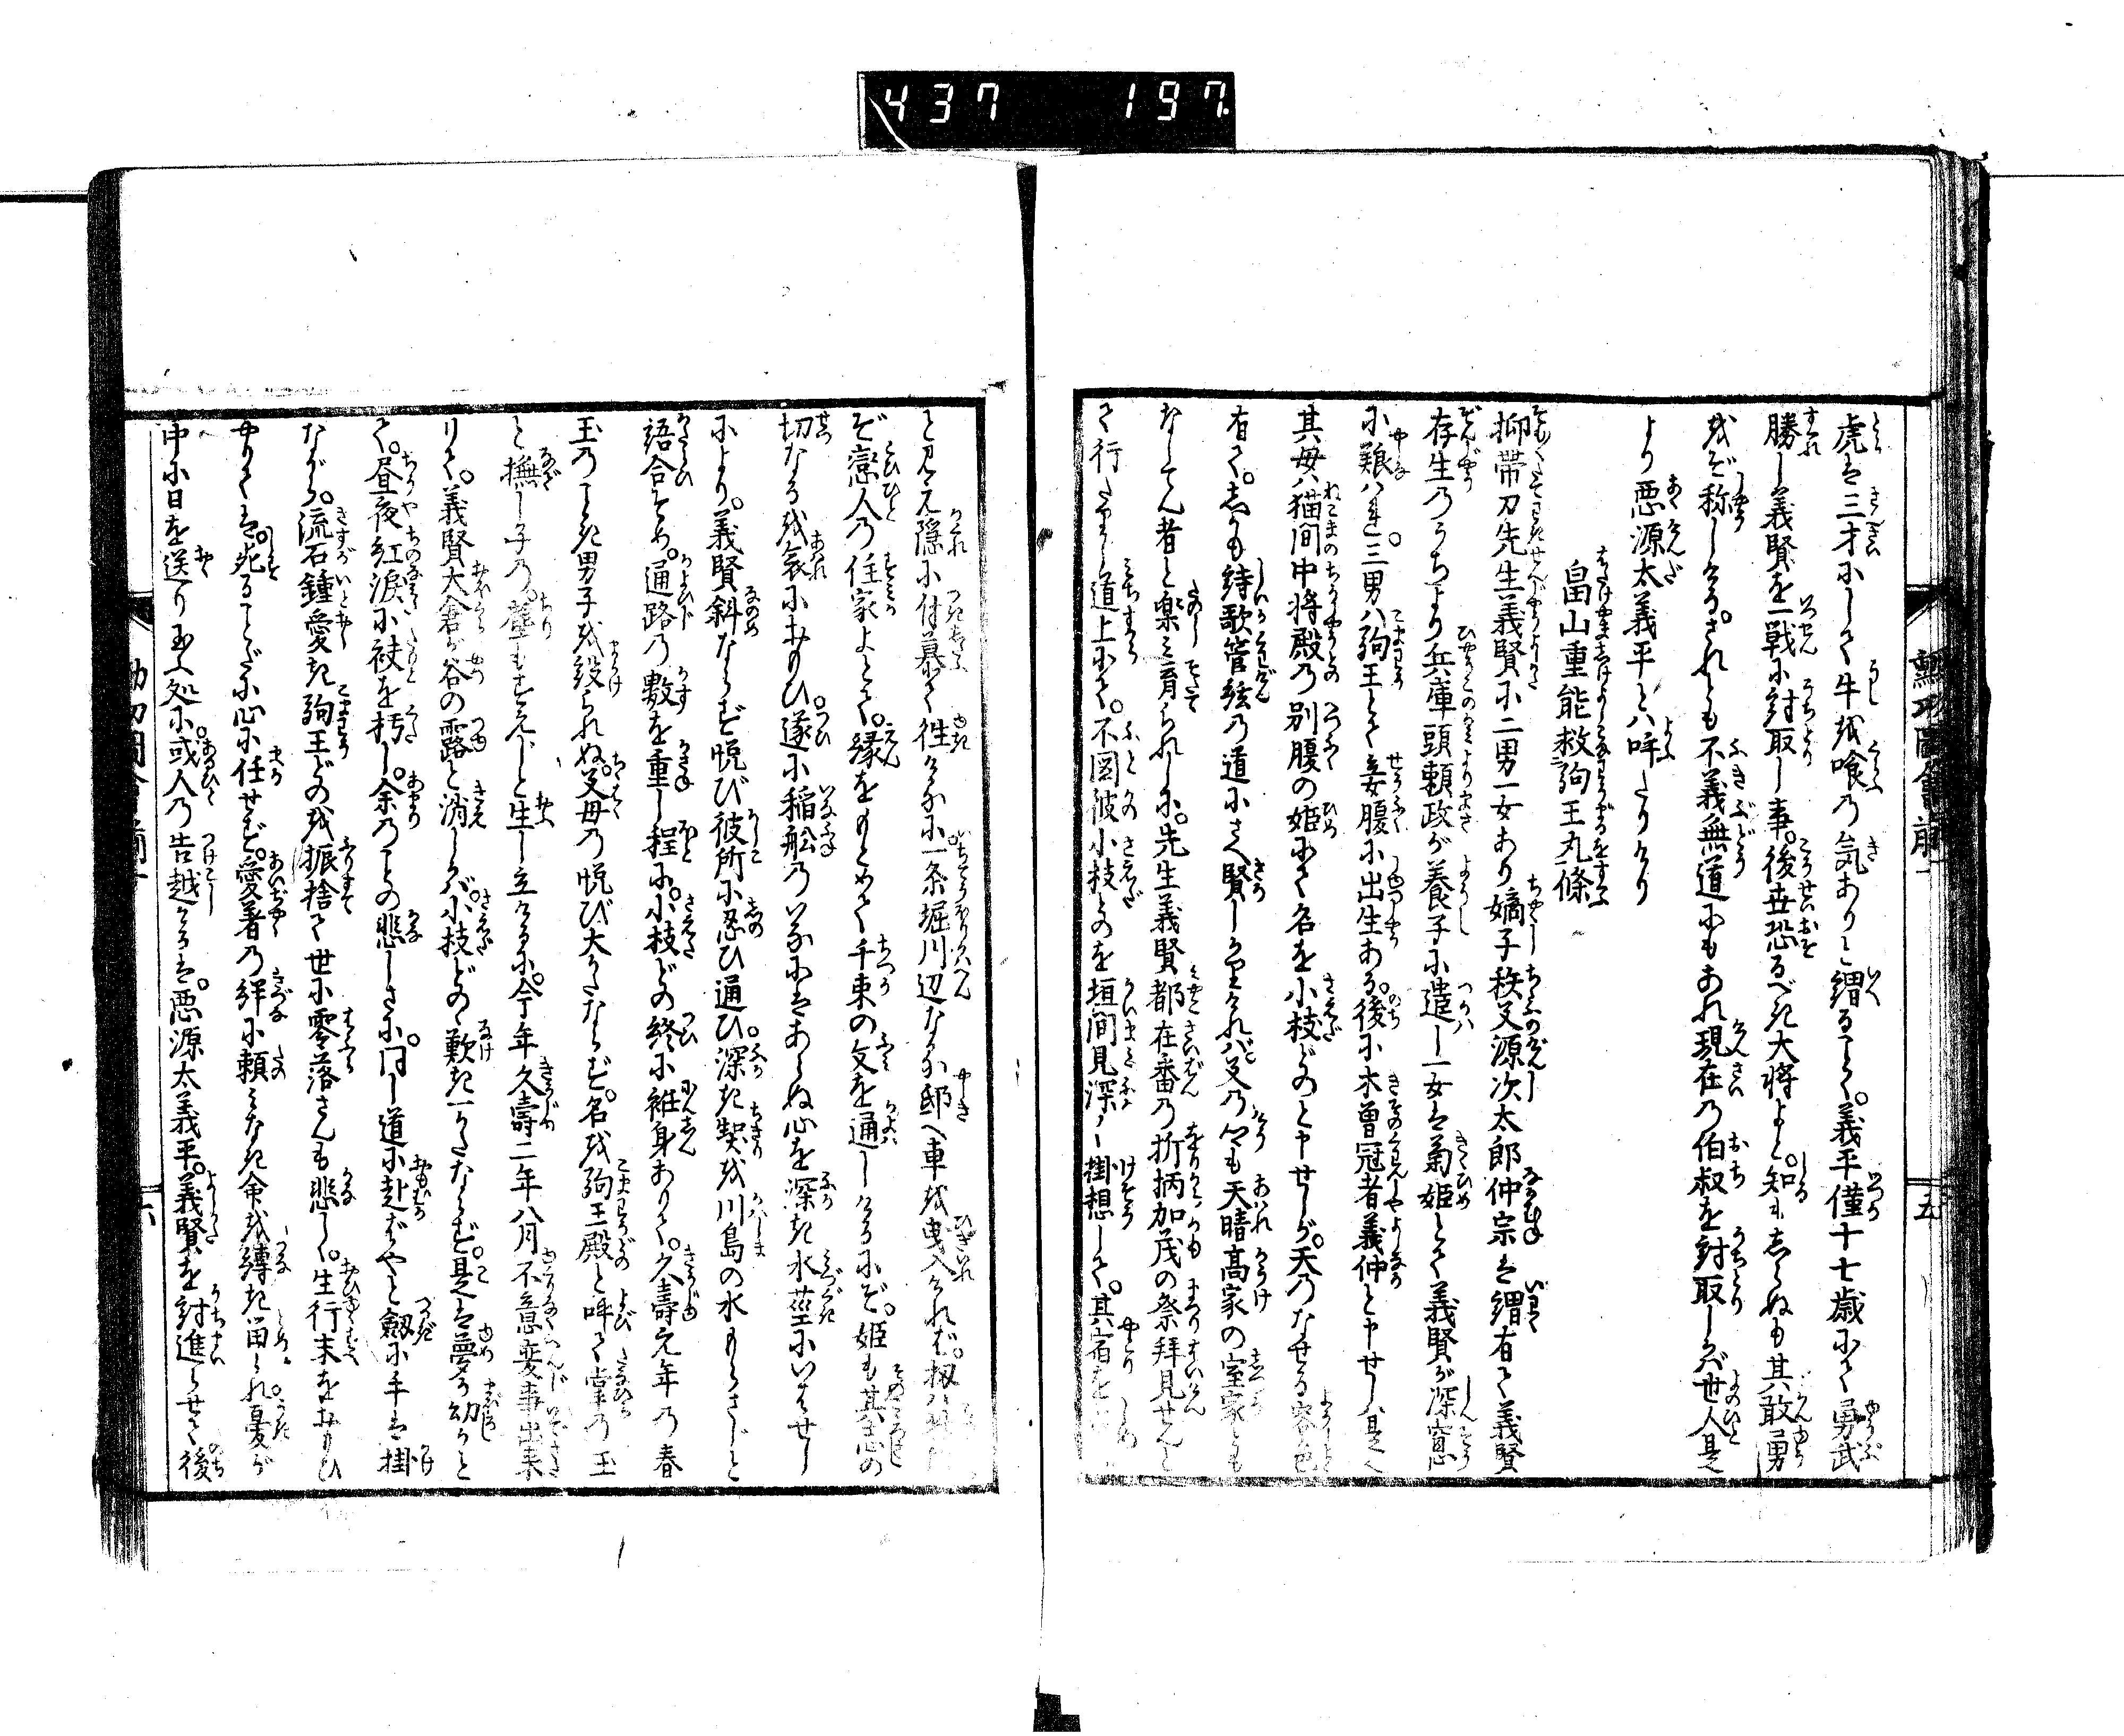 437 197
虎は三才にして牛を喰乃気ありと謂るべく。義平僅十七歳にて勇武
勝し義賢を一戦に討取し事。後世恐るべき大将よと。知もしらぬも其敢勇
をぞ称しける。されども不義無道にもあれ現在乃伯叔を討取しかば世人是
より悪源太義平とハ呼たりけり
畠山重能救駒王丸條
抑帯刀先生義賢に二男一女あり嫡子秩父源次太郎仲宗は謂有て義賢
存生乃うちより兵庫頭頼政が養子に遣し一女は菊姫とて義賢が深窓
に養ハれ。三男ハ駒王とて妾腹に出生ある。後に木曽冠者義仲と申せしハ是也
其母ハ猫間中将殿乃別腹の姫にて名を小枝どのと申せしが。天乃なせる容色
有て。しかも詩歌管絃乃道にさへ賢しかりければ父乃心も天晴高家の室家とも
なしてん者と楽み育られしに。先生義賢都在番乃折柄加茂の祭拝見せんと
て行たまふ道上にて。不図彼小枝どのを垣間見深く掛想して。其宿を
と見え隠に付慕て往けるに。一条堀川辺なる邸へ車を曳入ければ。扨ハ
ぞ恋人乃住家よとて。縁をもとめて千束の文を通しけるにぞ。姫も其志の
切なるを哀におもひ。遂に稲舩乃いなにはあらぬ心を深き水茎にいはせし
により。義賢斜ならず悦び彼所に忍ひ通ひ。深き契を川島の水もらさじと
語合そめ。通路乃数を重し程に。小枝どの終に妊身ありて。久壽元年乃春
玉乃ごとき男子を設られぬ。父母乃悦び大かたならず。名を駒王殿と呼て掌乃玉
と撫し子乃。塵もすゑじと生し立けるに。今年久壽二年八月不意変事出来
りて。義賢大倉が谷の露と消しかバ。小枝どのゝ歎き一かたならず。是は夢か幼かと
て。昼夜紅涙に袂を朽し。余乃ことの悲しさに。同し道に赴ばやと劔に手は掛
ながら。流石鍾愛き駒王どのを振捨て世に零落さんも悲しく。生行末をおもひ
やりては。死ることだに心に任せず。愛著乃絆に頼みなき命を縛き留られ憂が
中に日を送り玉ふ処に。或人乃告越けるは。悪源太義平。義賢を討進らせて後